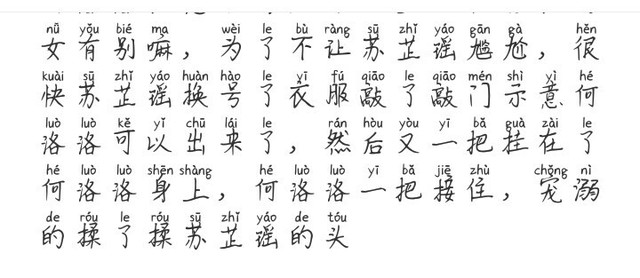 nǚ yǒu bié ma wèi le bù ràng sū zhǐ yáo gān gà hěn
女有别嘛，为了不让苏芷瑶尴尬，很
kuài sū zhǐ yáo huàn hào le yī fú qiāo le qiāo mén shì yì hé
快苏芷瑶换号了衣服敲了敲门示意何
luò luò kě yǐ chū lái le rán hòu yòu yī bǎ guà zài le
洛洛可以出来了，然后又一把挂在了
hé luò luò shēn shàng hé luò luò yī bǎ jiē zhù chǒng nì
何洛洛身上，何洛洛一把接住，宠溺
de róu le róu sū zhǐ yáo de tóu
的揉了揉苏芷瑶的头